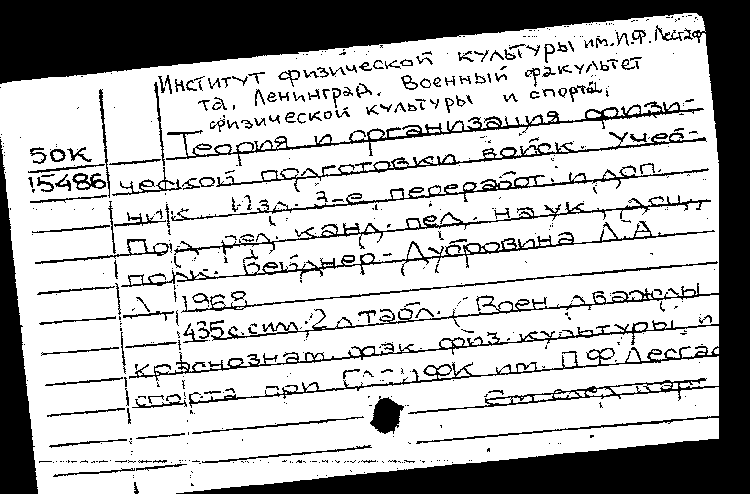 Институт физической культуры им. П.Ф. Лесгаф
та, Ленинград. Военный факультет
физической культуры и спорта,
Теория и организация физи-
50К
15486
ческой подготовки войск. Учеб-
ник. Изд. 3-е, переработ. и доп.
Под ред. канд. пед. наук, доц.,
полк. Вейднер-Дубровина Л.А.
Л., 1968
435 с. с илл; 2 л табл. (Воен дважды
краснознам. фак. физ. культуры и
спорта при ГДОИФК им. П.Ф. Лесгаф
См след карт